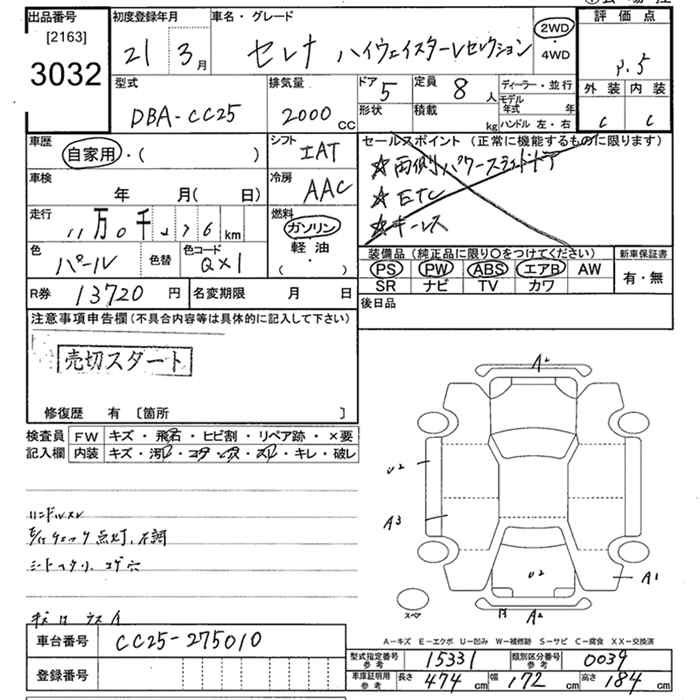 出品番号 [2163] 3032
初度登録年月 21 3月
車名・グレード セレナ ハイウェイスターVセレクション 2WD・4WD
評価点 P.5
外装 内装
C C
型式 DBA-CC25
排気量 2000 CC
ドア 5 定員 8 人
形状 積載 kg
ディーラー・並行
モデル年式 年
ハンドル 左・右
車歴 自家用・( )
シフト IAT
車検 年 月( 日)
冷房 AAC
セールスポイント (正常に機能するものに限ります)
☆両側パワースライドドア
☆ETC
☆キーレス
走行 11万0千276 km
燃料 ガソリン
軽油
( ・ )
色 パール 色替 色コード QX1
装備品 (純正品に限り○をつけてください) 新車保証書
PS PW ABS エアB AW
SR ナビ TV カワ
有・無
R券 13720 円 名変期限 月 日
後日品
注意事項申告欄 (不具合内容等は具体的に記入して下さい)
売切スタート
修復歴 有 [箇所 ]
検査員 FW キズ・飛石・ヒビ割・リペア跡・×要
記入欄 内装 キズ・汚レ・コゲ・ヘコミ・スレ・キレ・破レ
ハンドルスレ
E/gチェック点灯、不調
シートヘタリ コゲ穴
A2
U2
A3
U2
A1
A2
スペア
A-キズ E-エクボ U-凹み W-補修跡 S-サビ C-腐食 XX-交換済
車台番号 CC25-275010
登録番号
型式指定番号 参考 15331 類別区分番号 参考 0039
車庫証明用 参考 長さ 474 cm 幅 172 cm 高さ 184 cm